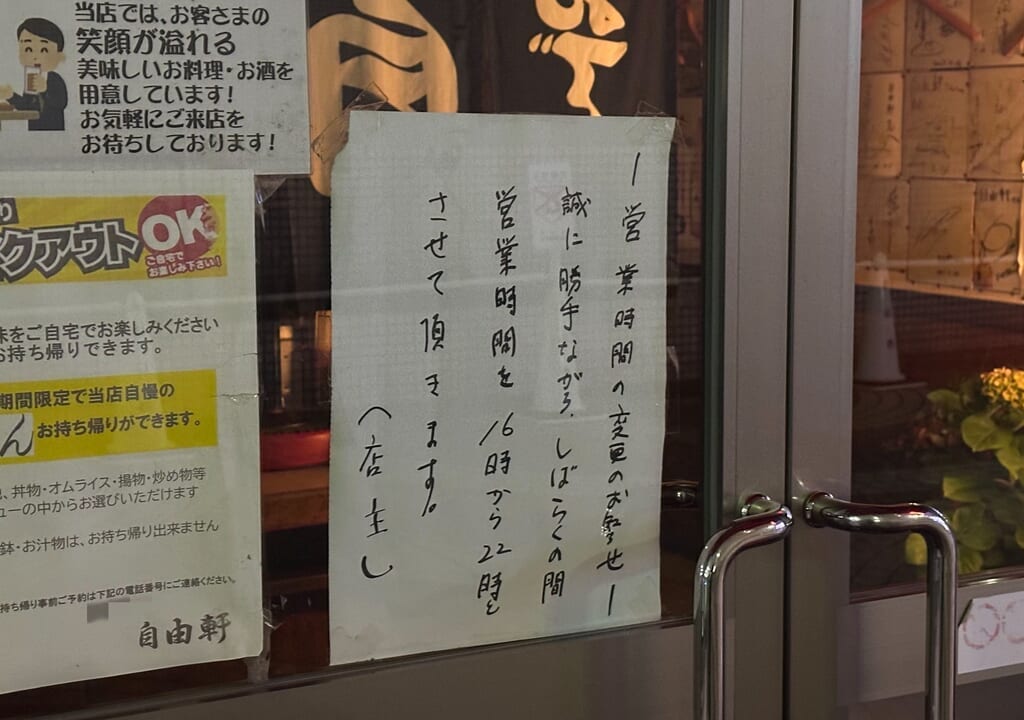 当店では、お客さまの
笑顔が溢れる
美味しいお料理・お酒を
用意しています!
お気軽にご来店を
お待ちしております!
クアウト
OK
ご自宅で
お楽しみ下さい!
をご自宅でお楽しみください
お持ち帰りできます。
期間限定で当店自慢の
ん お持ち帰りができます。
、丼物・オムライス・揚物・炒め物等
ューの中からお選びいただけます
鉢・お汁物は、お持ち帰り出来ません
持ち帰り事前ご予約は下記の電話番号にご連絡ください。
自由軒
ー営業時間の変更のお知らせー
誠に勝手ながら、しばらくの間
営業時間を16時から22時と
させて頂きます。
〈店主〉